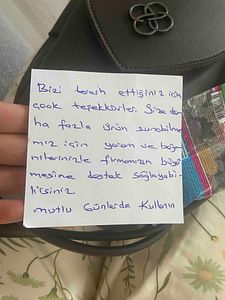 Bizi tercih ettiğiniz için
çook teşekkürler. Size da
ha fazla ürün sunabilme
miz için yorum ve beğe
nilerinizle firmamızın büyü
mesine destek sağlayabi
lirsiniz
mutlu Günlerde Kullanın